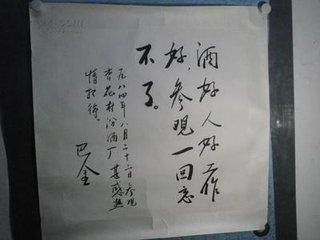 酒好人好工作
好，参观一回忘
不了。
一九八四年八月二十二日参观
杏花村汾酒厂甚感热
情招待。
巴金